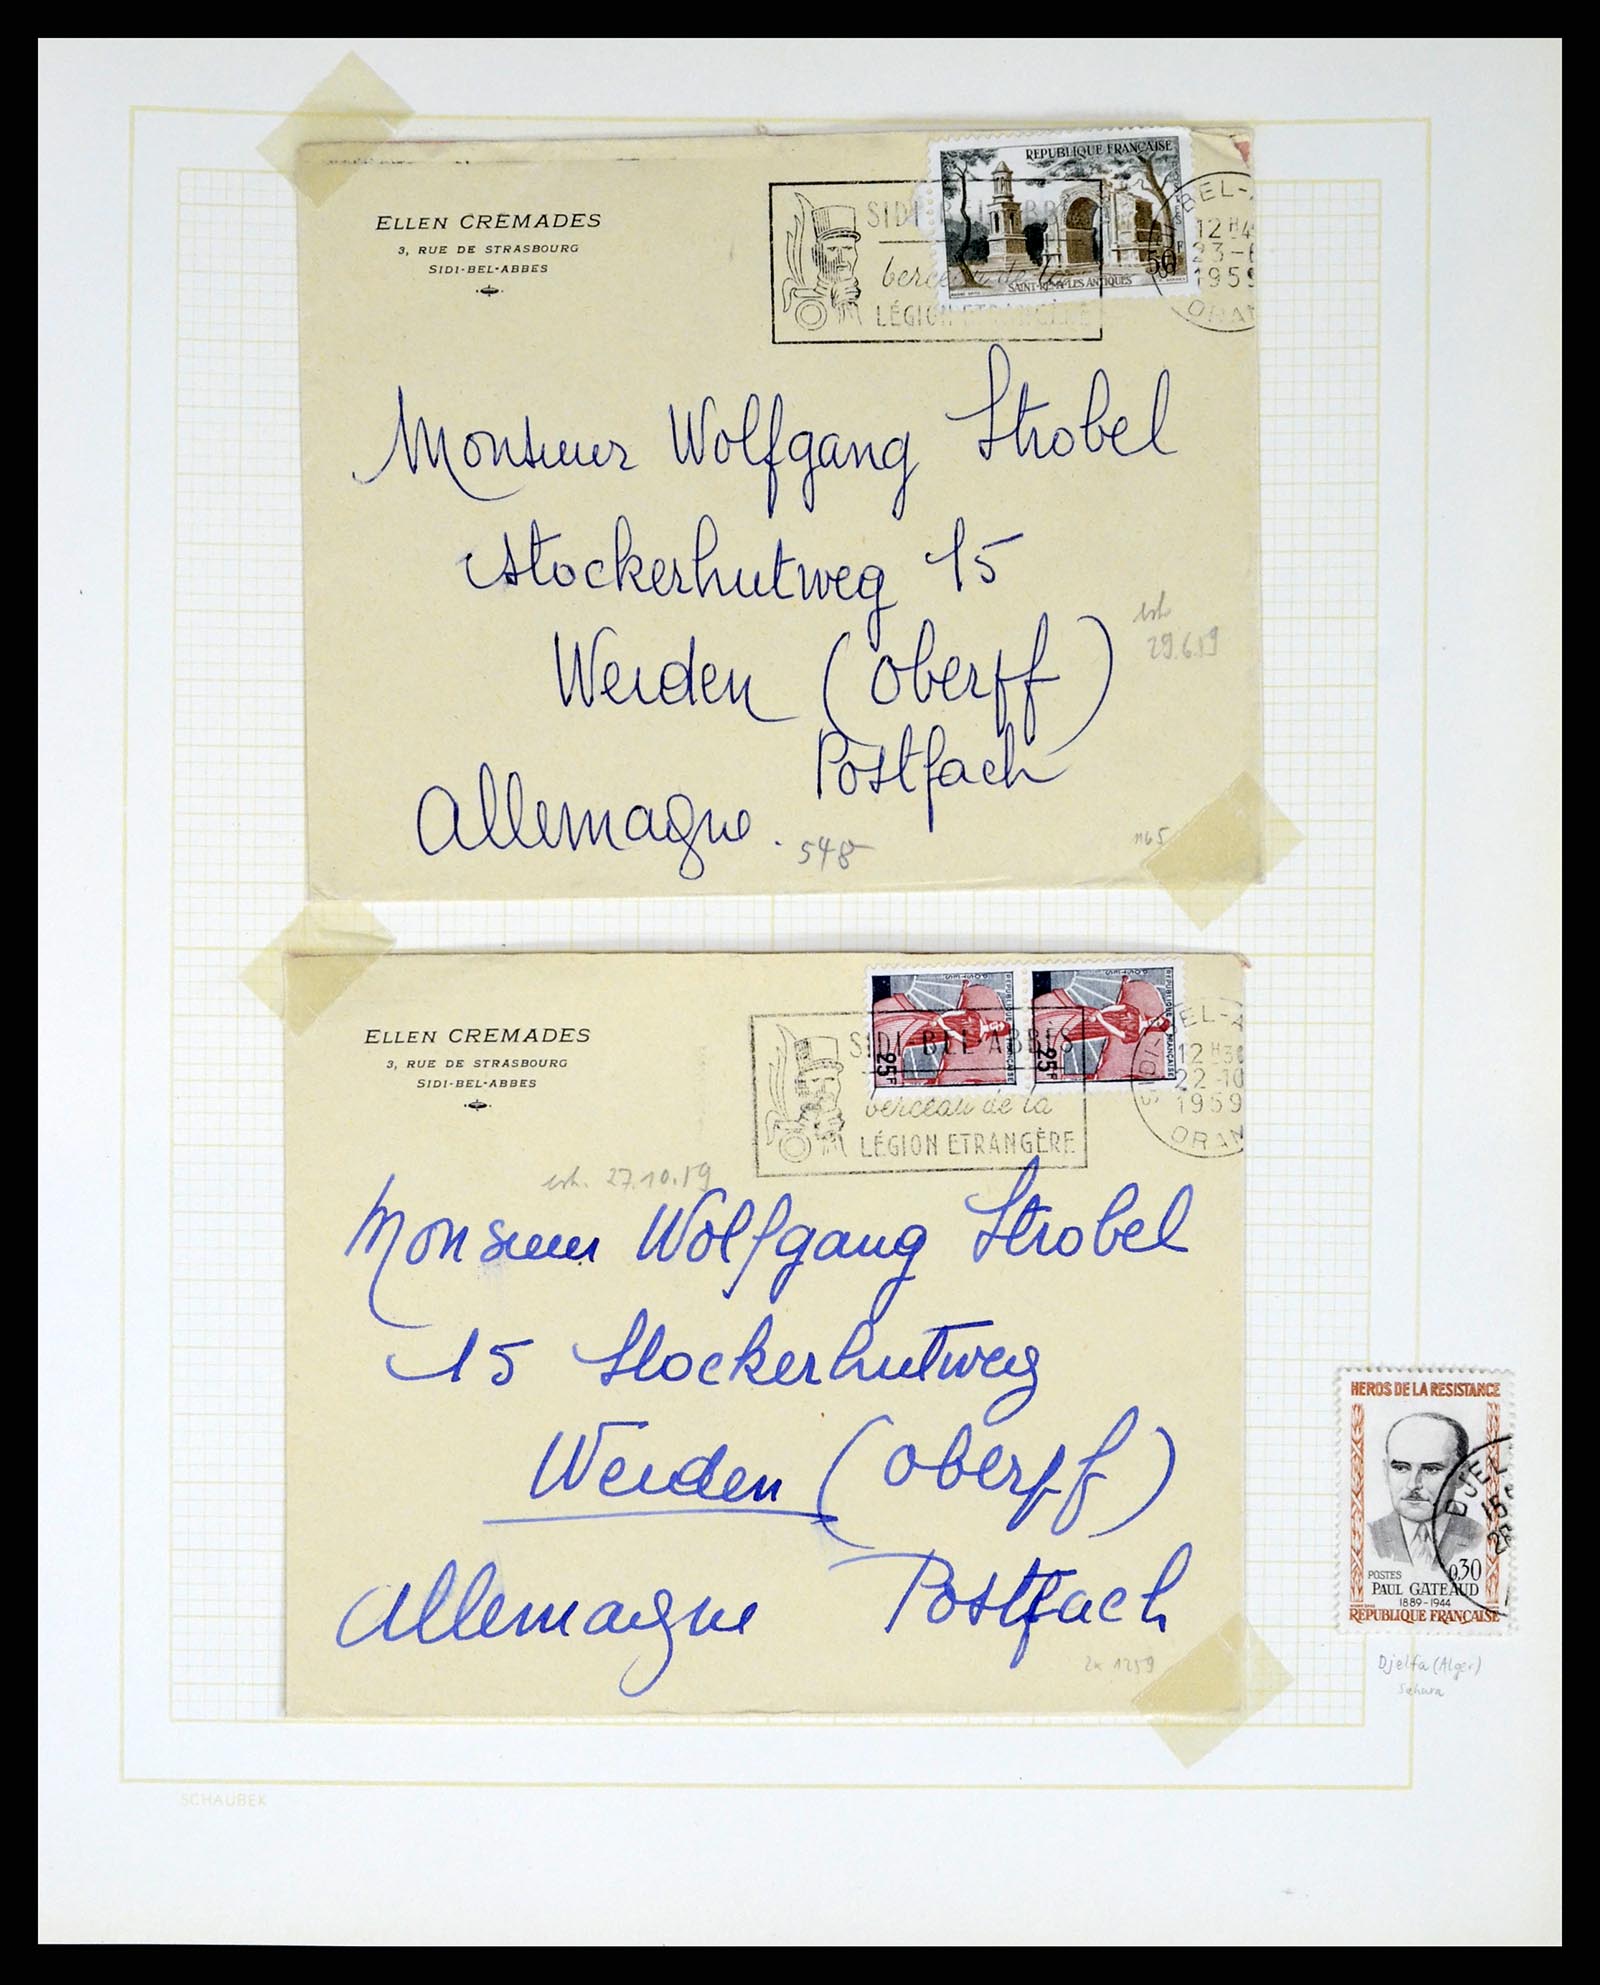 ELLEN CREMADES
3, RUE DE STRASBOURG
SIDI-BEL-ABBES
REPUBLIQUE FRANÇAISE
SAINT-REMY LES ANTIQUES
50F
SIDI BEL ABBES
berceau de la
LÉGION ETRANGÈRE
BEL-A
12 H4
23-6
1959
ORAN
Monsieur Wolfgang Strobel
Stockerhutweg 15
Weiden (Oberpf)
Postfach
Allemagne.
29.6.59
548
1165
ELLEN CREMADES
3, RUE DE STRASBOURG
SIDI-BEL-ABBES
REPUBLIQUE FRANÇAISE
25F
REPUBLIQUE FRANÇAISE
25F
SIDI BEL ABBÈS
berceau de la
LÉGION ETRANGÈRE
SIDI-BEL-A
12 H30
22-10
1959
ORAN
27.10.59
Monsieur Wolfgang Strobel
15 Stockerhutweg
Weiden (Oberpf)
Allemagne Postfach
2x 1259
HEROS DE LA RESISTANCE
DJEL
15
POSTES 0,30
PAUL GATEAUD
1889-1944
REPUBLIQUE FRANÇAISE
Djelfa (Alger)
Sahara
SCHAUBEK